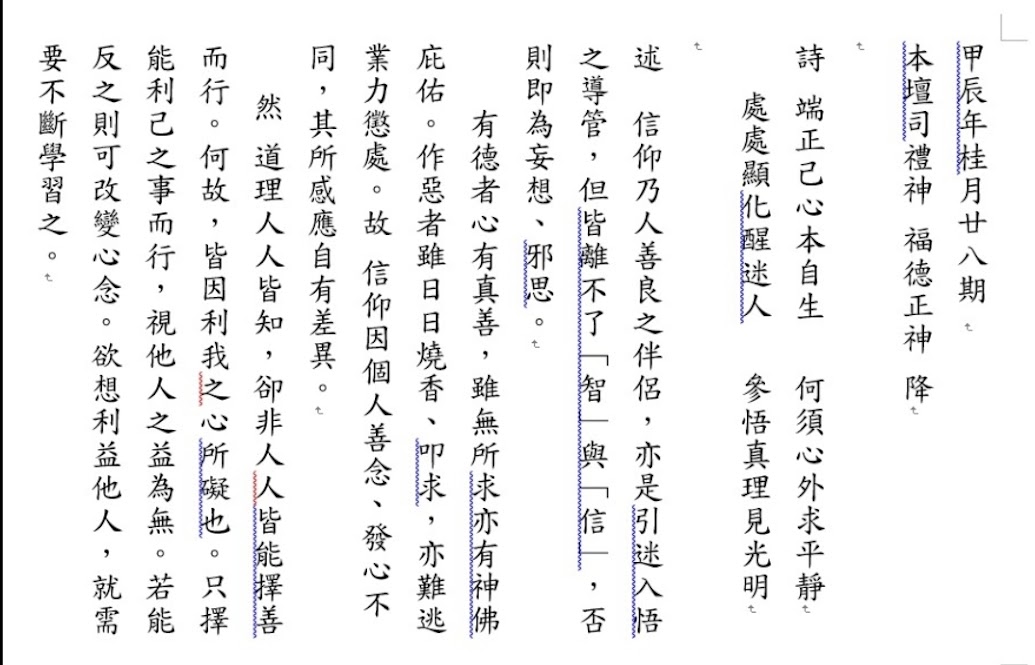 甲辰年桂月廿八期
本壇司禮神 福德正神 降
詩 端正己心本自生 何須心外求平靜
處處顯化醒迷人 參悟真理見光明
述 信仰乃人善良之伴侶，亦是引迷入悟
之導管，但皆離不了「智」與「信」，否
則即為妄想、邪思。
有德者心有真善，雖無所求亦有神佛
庇佑。作惡者雖日日燒香、叩求，亦難逃
業力懲處。故 信仰因個人善念、發心不
同，其所感應自有差異。
然 道理人人皆知，卻非人人皆能擇善
而行。何故，皆因利我之心所礙也。只擇
能利己之事而行，視他人之益為無。若能
反之則可改變心念。欲想利益他人，就需
要不斷學習之。